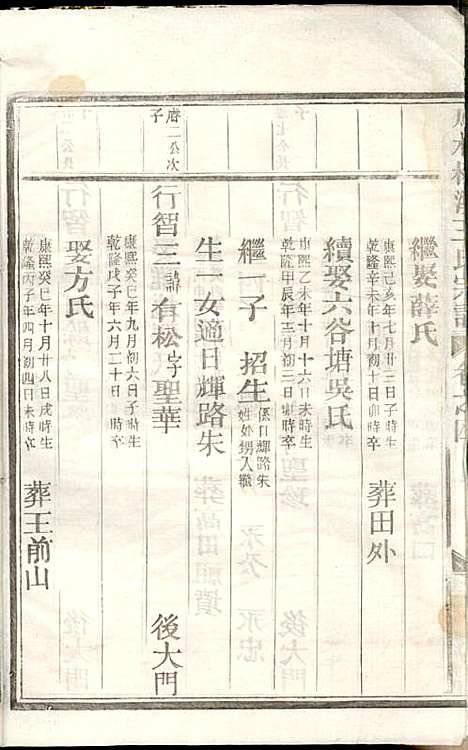 繼娶薛氏
康熙己亥年七月廿三日子時生
乾隆辛未年十月初十日卯時卒
葬田外
續娶六谷塘吳氏
康熙乙未年十月十六日未時生
乾隆甲辰年三月初三日巳時卒
繼一子 招生
係日輝路朱
姓外甥入繼
生一女適日輝路朱
啓二公次
子
行智三諱有松字聖華 後大門
康熙癸巳年九月初六日子時生
乾隆戊子年六月二十日 時卒
娶方氏
康熙癸巳年十月廿八日戌時生
乾隆丙子年四月初四日未時卒
葬王前山